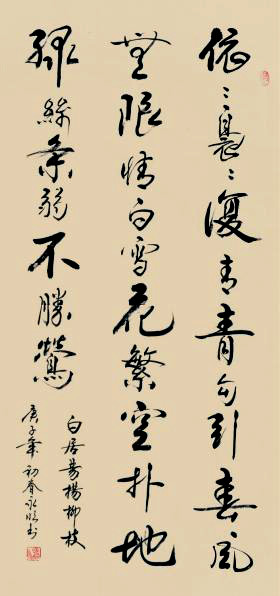 依〻裊〻復青青勾引春風
無限情白雪花繁空扑地
綠絲条弱不勝鶯
白居易楊柳枝
庚子年初春永书